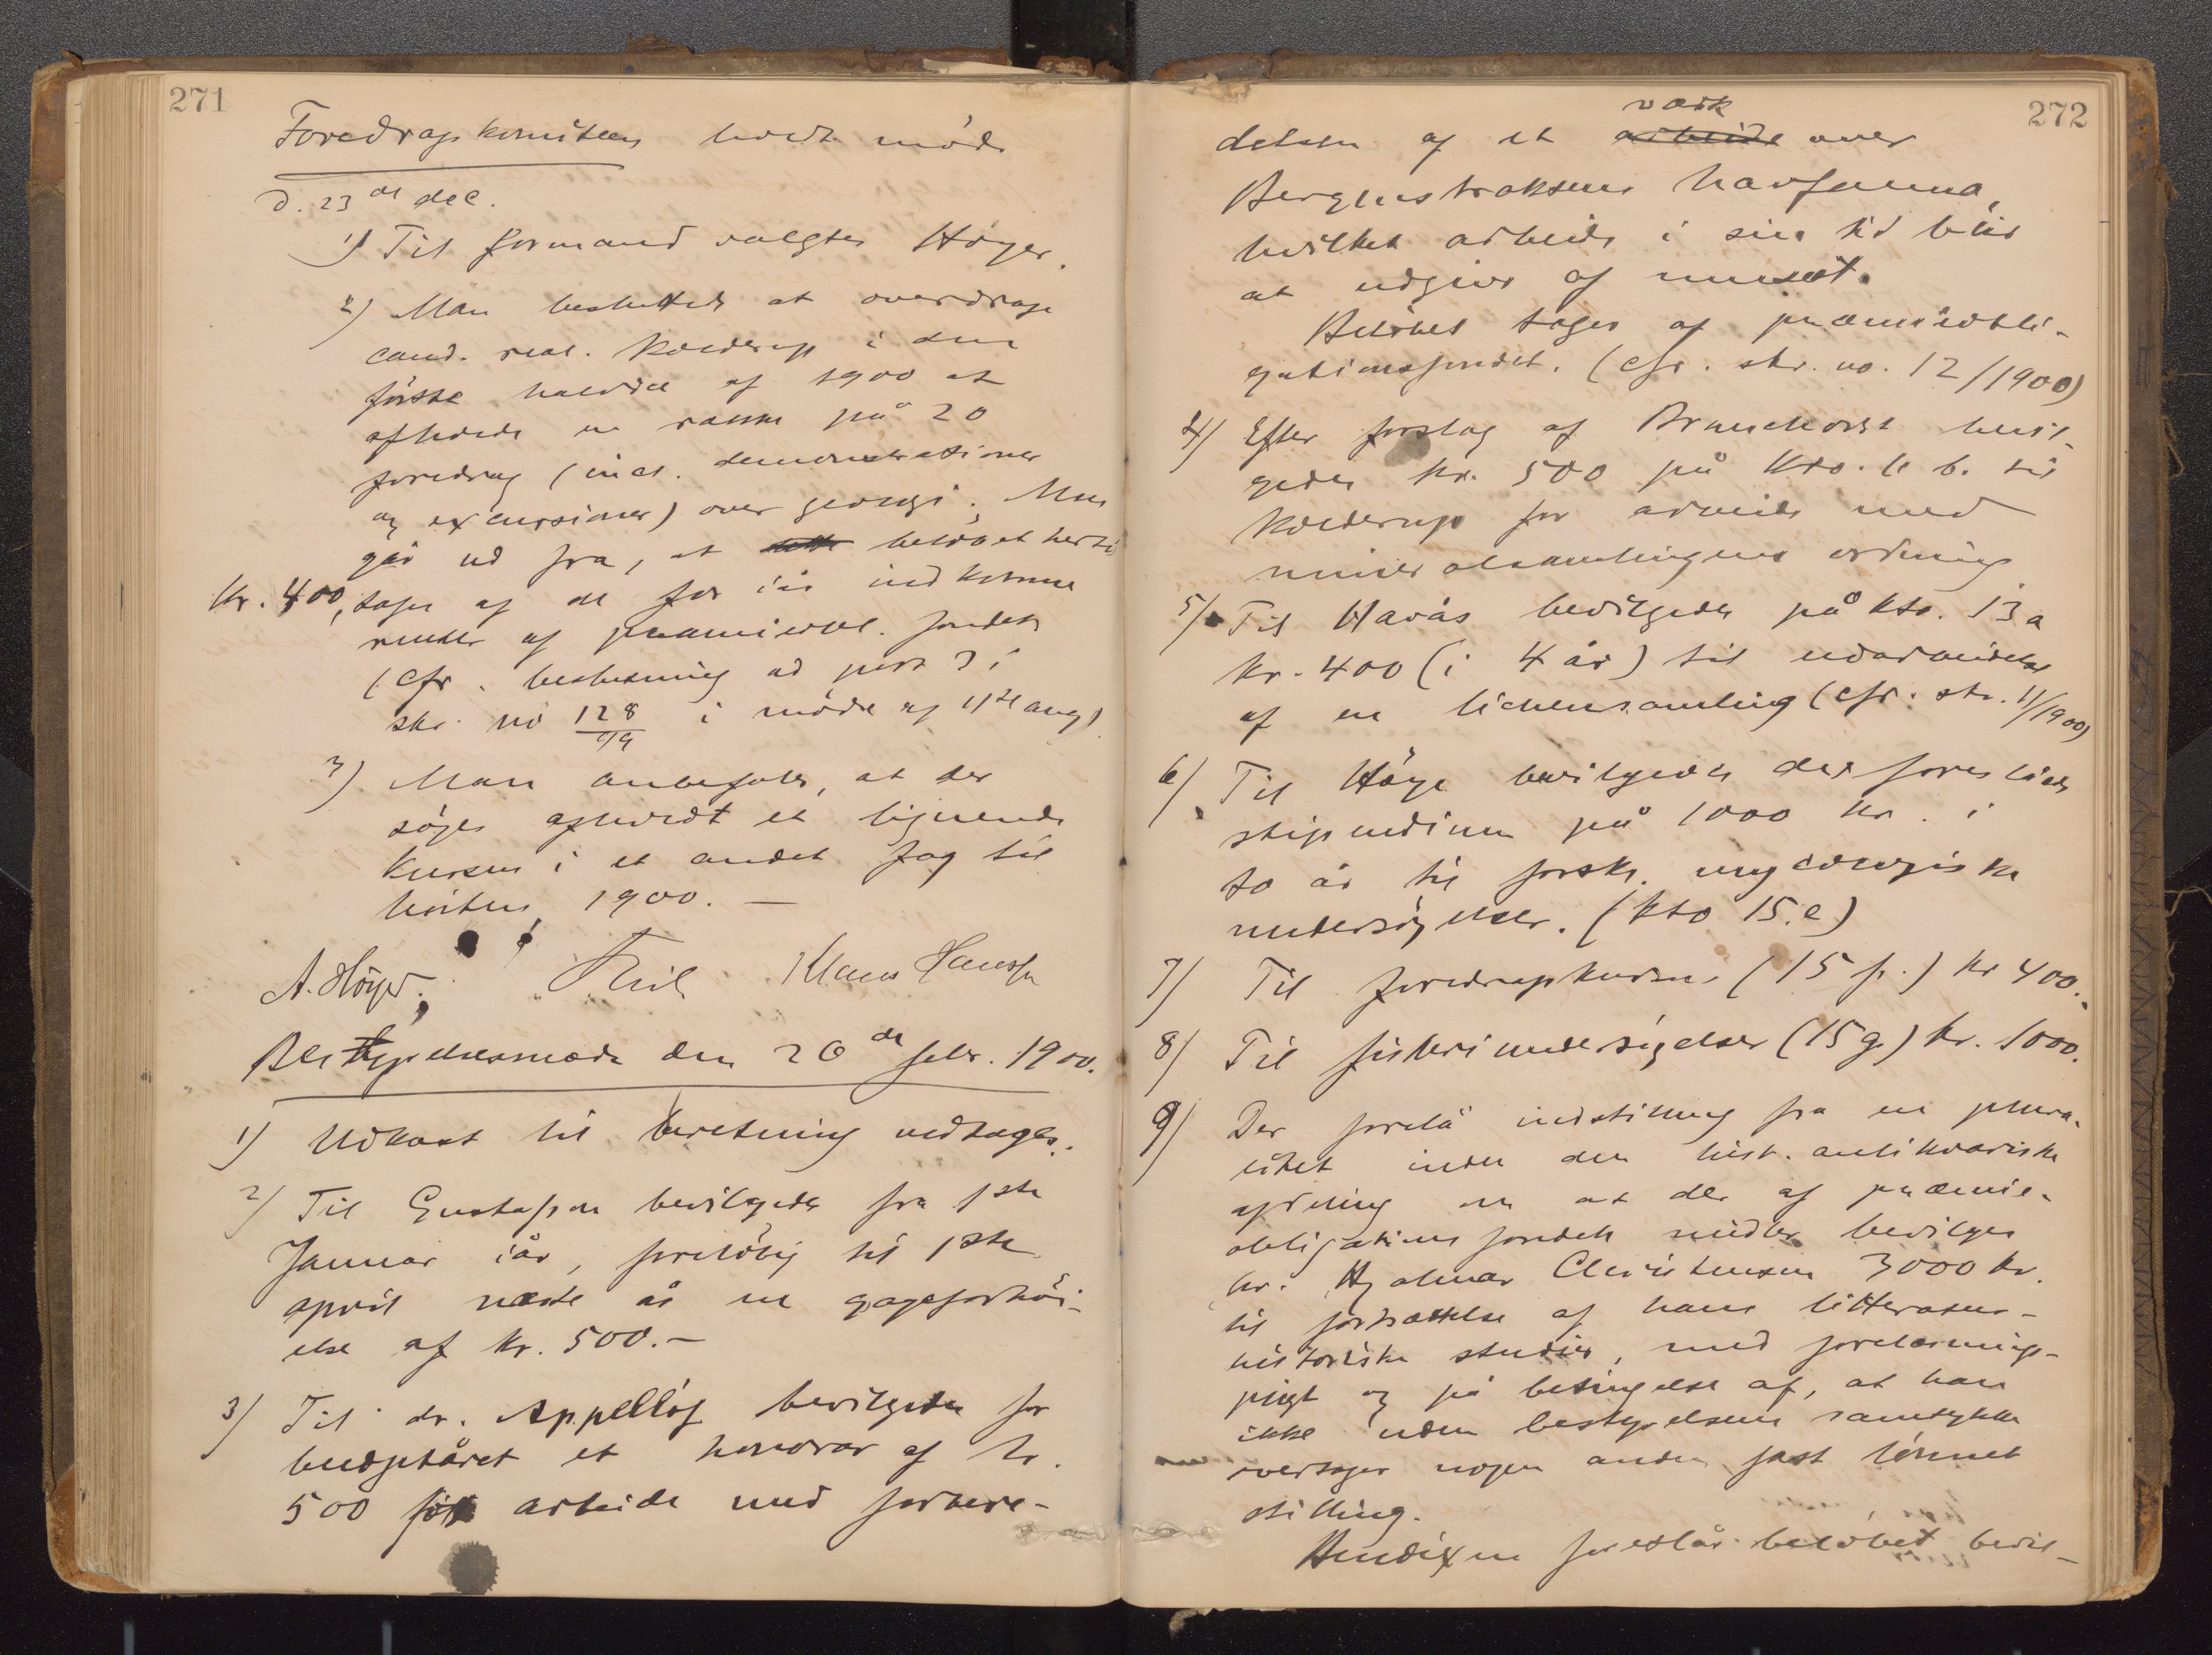 271
Foredragskomiteen holdt möde
d. 23de dec.
1) Til formand valgtes Höyer.
2) Man besluttede at overdrage
cand. real. Kolderup i den
förste halvdel af 1900 at
afholde en række på 20
foredrag (incl. demonstrationer
og excursioner) over geologi. Man
går ud fra, at belöbet hertil
kr. 400, tages af de for iår indkomne
renter af præmieobl. fondet
(cfr. beslutning ad post 3 i
skr. no 128/99 i möde af 11te aug).
3) Man anbefaler, at der
söges afholdt et lignende
kursus i et andet fag til
hösten 1900. —
A. Höyer. Klaus Hanssen
Bestyrelsesmöde den 26de febr. 1900.
1) Udkast til beretning vedtages.
2) Til Gustafson bevilgedes fra 1ste
Januar iår, foreløbig til 1ste
april næste år en gageforhöi-
else af kr. 500.—
3) Til dr. Appellöf bevilgedes for
budgetåret et honorar af kr.
500 for arbeide med forbere-
272
værk
delsen af et arbeide over
Bergenstraktens havfauna,
hvilket arbeide i sin tid blir
at udgive af museet.
Belöbet tages af præmieobli-
gationsfondet. (cfr. skr. no. 12/1900)
4) Efter forslag af Brunchorst bevil-
gedes kr. 500 på Kto. 6 b. til
Kolderup for arbeide med
mineralsamlingens ordning
5) Til Havås bevilgedes på kto. 13 a
kr. 400 (i 4 år) til udarbeidelse
af en lichensamling (cfr. skr. 11/1900)
6) Til Höye bevilgedes det foreslåede
stipendium på 1000 kr. i
to år til forsk. mycologiske
undersögelser. (kto 15.e)
7) Til foredragskursus (15 f.) kr 400.
8) Til fiskeriundersögelser (15 g.) kr. 1000.
9) Der forelå indstilling fra en plura-
litet inden den hist. antikvariske
afdeling om at der af præmie-
obligationsfondets midler bevilges
hr. Hjalmar Christensen 3000 kr.
til fortsættelse af hans litteratur-
historiske studier, med forelæsnings-
pligt og på betingelse af, at han
ikke uden bestyrelsens samtykke
overtager nogen anden fast lönnet
stilling.
Hendixen foreslår belöbet bevil-